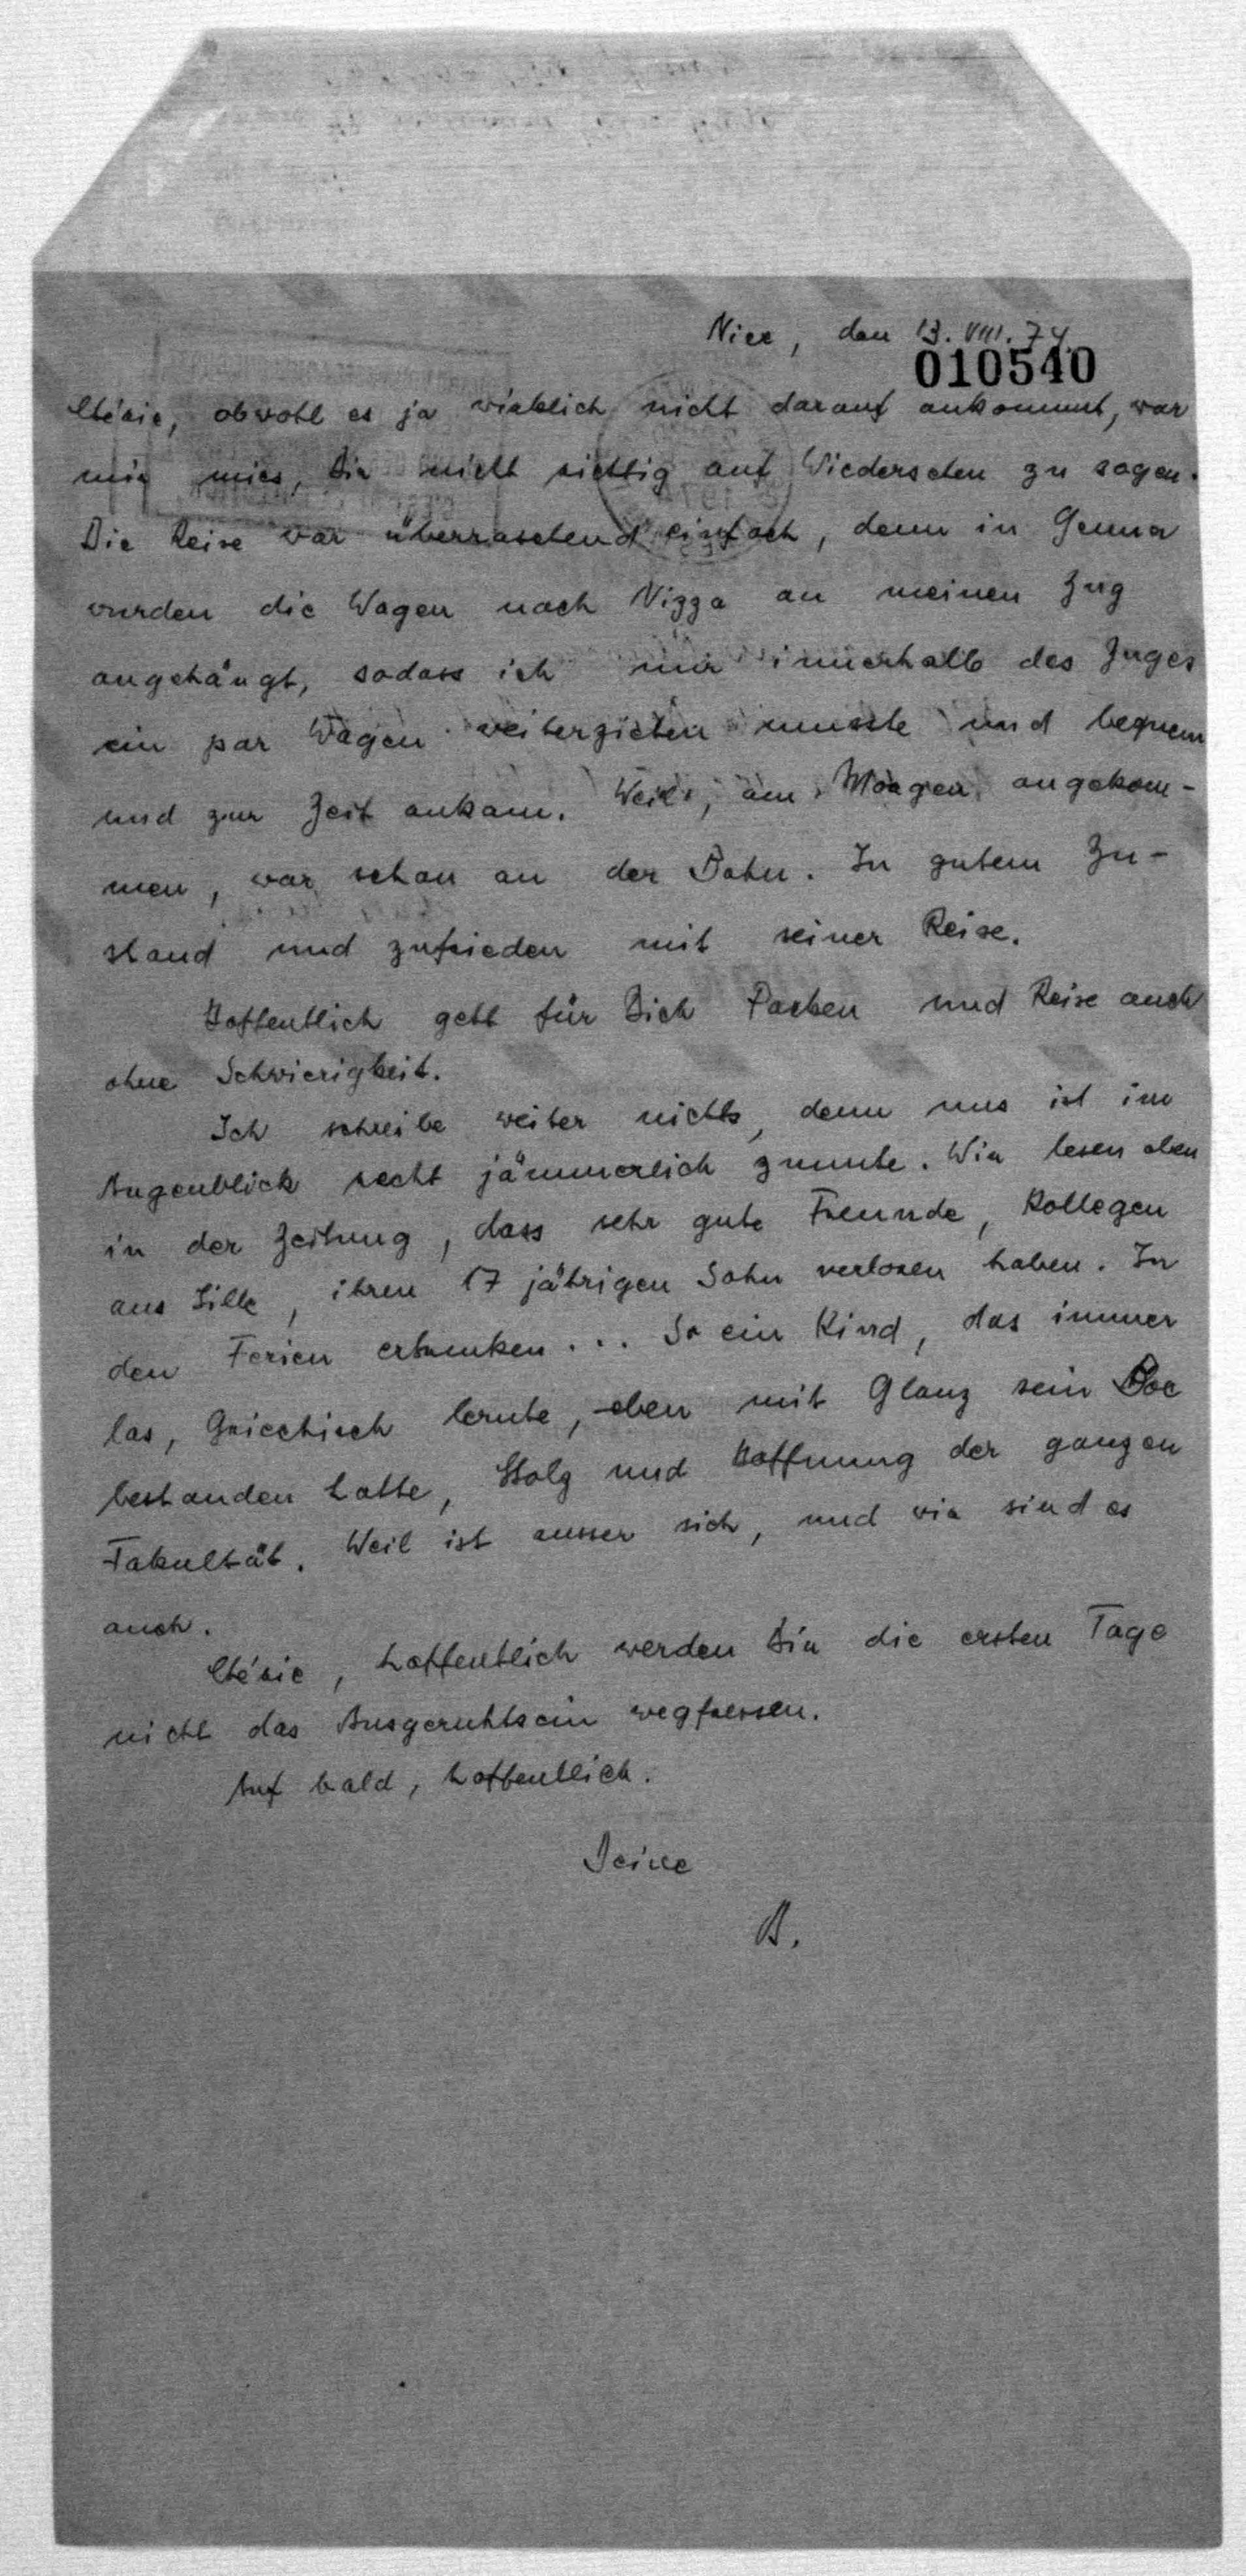 Nice, den 13. VIII. 74.
010540
Chérie, obwohl es ja wirklich nicht darauf ankommt, war
mir mies, Dir nicht richtig auf Wiedersehen zu sagen.
Die Reise war überraschend einfach, denn in Genua
wurden die Wagen nach Nizza an meinen Zug
angehängt, sodass ich nur innerhalb des Zuges
ein par Wagen weiterziehen musste und bequem
und zur Zeit ankam. Weil, am Morgen angekom-
men, war schon an der Bahn. In gutem Zu-
stand und zufrieden mit seiner Reise.
Hoffentlich geht für Dich Packen und Reise auch
ohne Schwierigkeit.
Ich schreibe weiter nichts, denn uns ist im
Augenblick recht jämmerlich zumute. Wir lesen eben
in der Zeitung, dass sehr gute Freunde, Kollegen
aus Lille, ihren 17 jährigen Sohn verloren haben. In
den Ferien ertrunken... So ein Kind, das immer
las, Griechisch lernte, eben mit Glanz sein Bac
bestanden hatte, Stolz und Hoffnung der ganzen
Fakultät. Weil ist ausser sich, und wir sind es
auch.
Chérie, hoffentlich werden Dir die ersten Tage
nicht das Ausgeruhtsein wegfressen.
Auf bald, hoffentlich.
Deine
B.